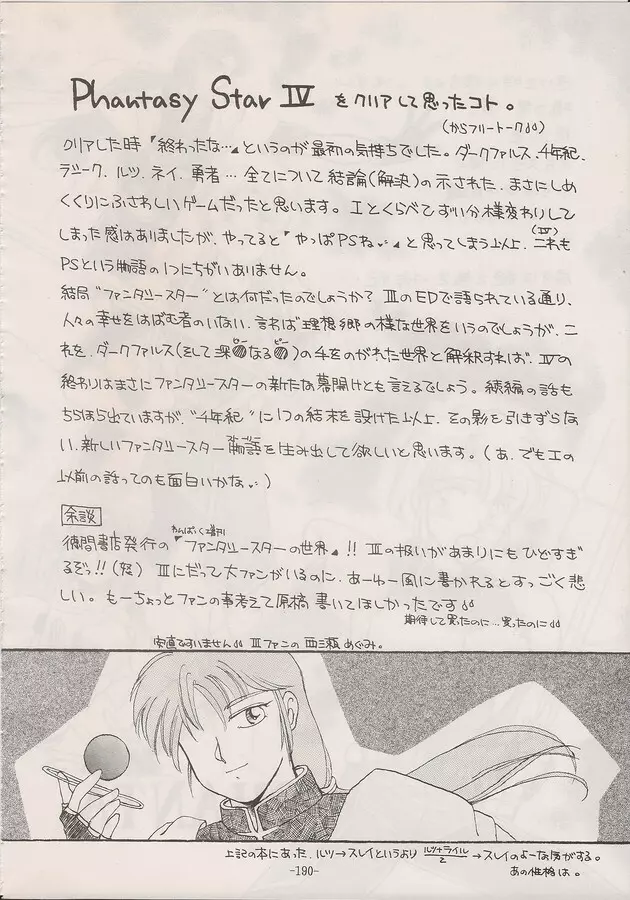 Phantasy Star IV をクリアして思ったコト。
(からフリートーク♪♪)
クリアした時『終わったな…』というのが最初の気持ちでした。ダークファルス、千年紀、
ラシーク、ルツ、ネイ、勇者…全てについて結論(解決)の示された、まさにしめ
くくりにふさわしいゲームだったと思います。Iとくらべてずい分様変わりして
しまった感はありましたが、やってると『やっぱPSね…』と思ってしまう以上、これも
(IV)
PSという物語の1つにちがいありません。
結局“ファンタシースター”とは何だったのでしょうか? IIIのEDで語られている通り、
人々の幸せをはばむ者のいない、言わば理想郷の様な世界をいうのでしょうが、こ
れを、ダークファルス(そして深●なる●)の手をのがれた世界と解釈すれば、IVの
ピー ピー
終わりはまさにファンタシースターの新たな幕開けとも言えるでしょう。続編の話も
ちらほら出ていますが、“千年紀”に1つの結末を設けた以上、その影を引きずらな
い、新しいファンタシースター物語を生み出して欲しいと思います。(あ、でもIの
以前の話ってのも面白いかな…)
余談
わんぱく増刊
徳間書店発行の『ファンタシースターの世界』!! IIIの扱いがあまりにもひどすぎ
るぞっ!!(怒) IIIにだって大ファンがいるのに、あーゆー風に書かれるとすっごく悲
しい。もーちょっとファンの事考えて原稿書いてほしかったです♪♪
期待して買ったのに…買ったのに♪♪
安直ですいません♪♪ IIIファンの 西三瀬 めぐみ。
上記の本にあった、ルツ→スレイというより ルツ+ライル/2 →スレイのよーな気がする。
あの性格は。
-190-